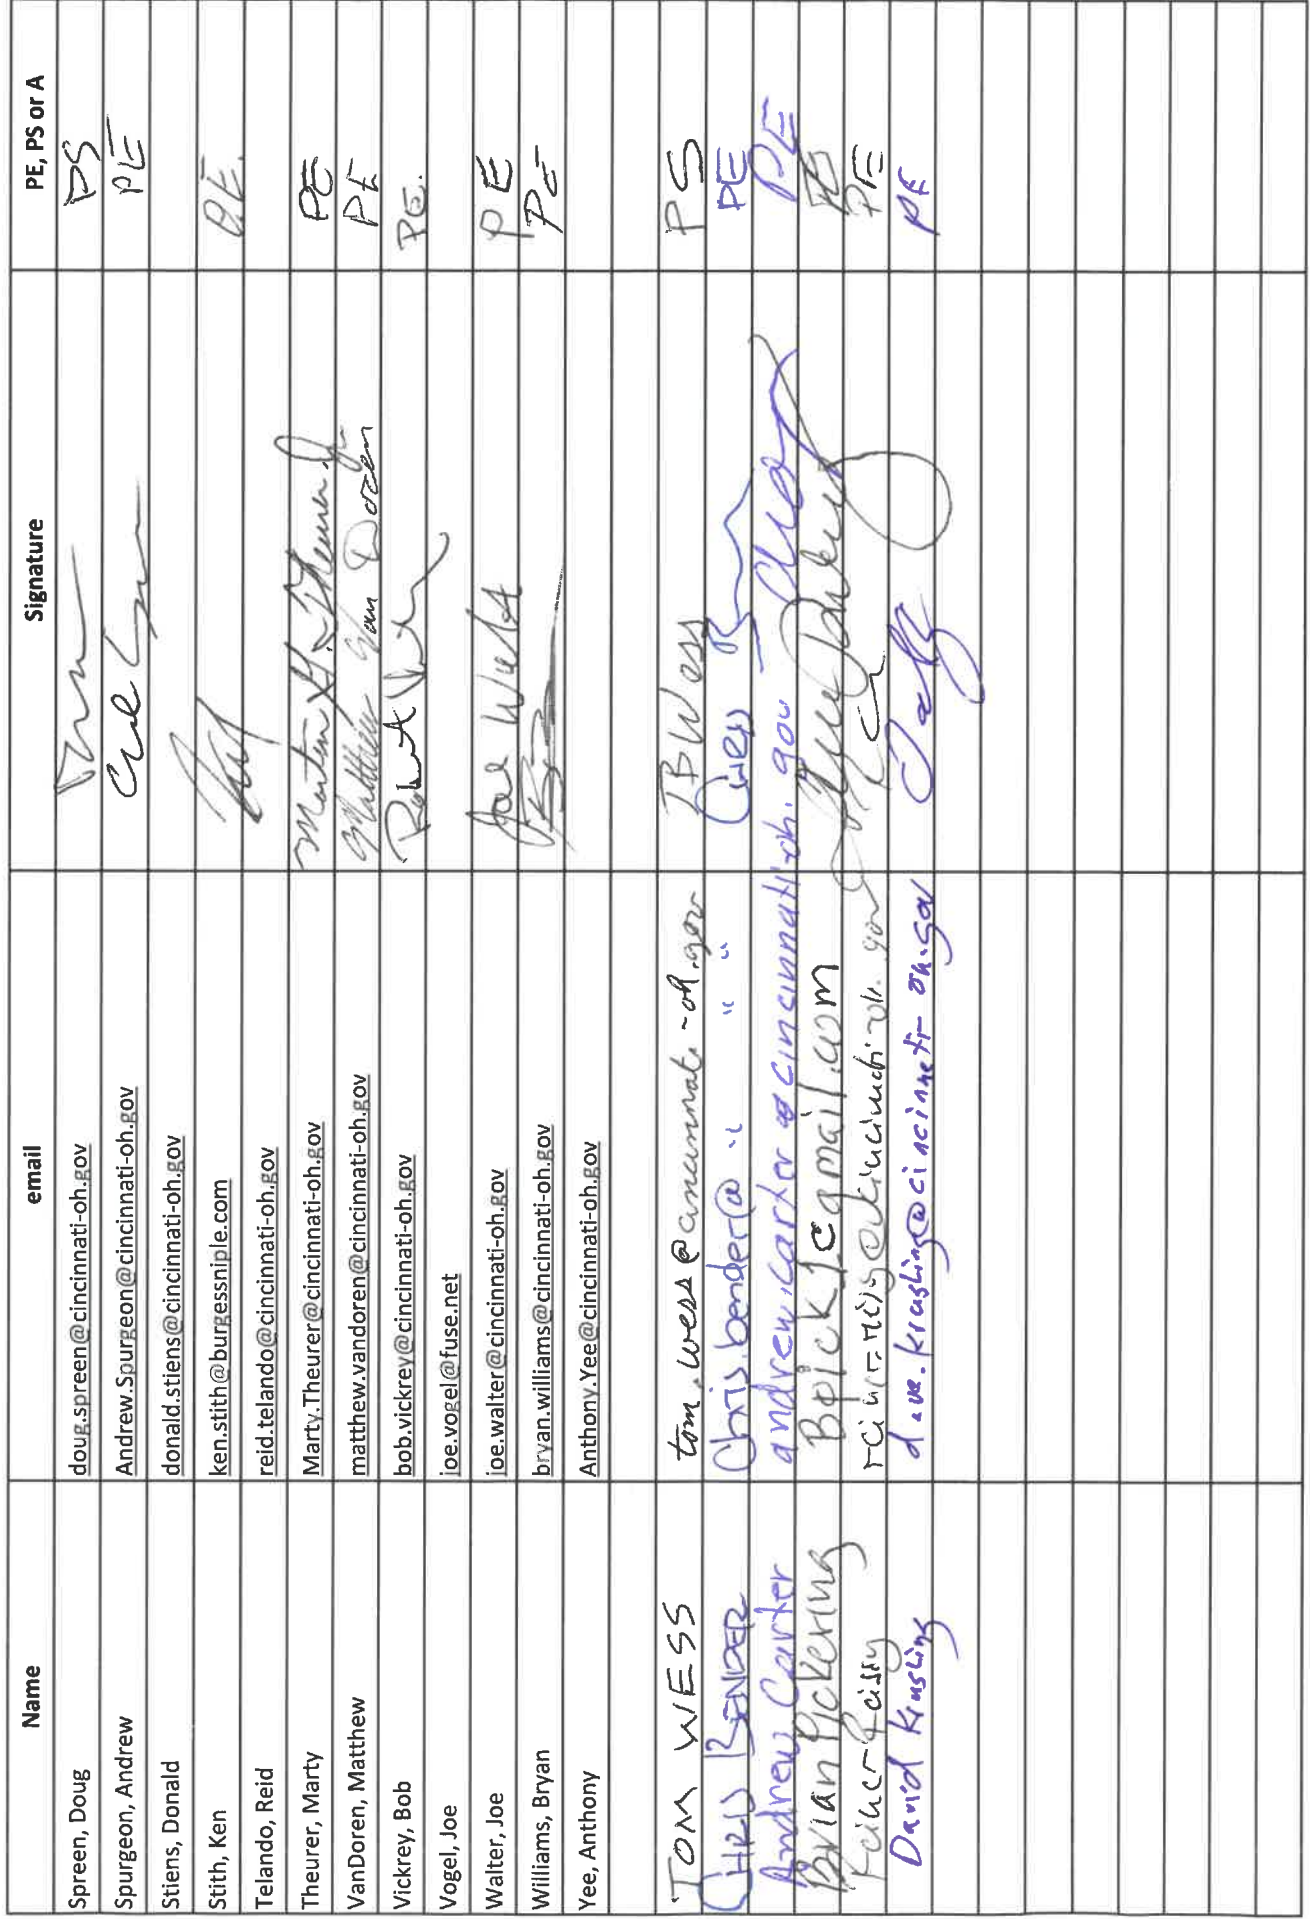 Name email Signature PE, PS or A
Spreen, Doug doug.spreen@cincinnati-oh.gov PS
Spurgeon, Andrew Andrew.Spurgeon@cincinnati-oh.gov PE
Stiens, Donald donald.stiens@cincinnati-oh.gov
Stith, Ken ken.stith@burgessniple.com P.E.
Telando, Reid reid.telando@cincinnati-oh.gov
Theurer, Marty Marty.Theurer@cincinnati-oh.gov PE
VanDoren, Matthew matthew.vandoren@cincinnati-oh.gov Matthew Van Doren PE
Vickrey, Bob bob.vickrey@cincinnati-oh.gov PE.
Vogel, Joe joe.vogel@fuse.net
Walter, Joe joe.walter@cincinnati-oh.gov Joe Walt PE
Williams, Bryan bryan.williams@cincinnati-oh.gov PE
Yee, Anthony Anthony.Yee@cincinnati-oh.gov
TOM WESS tom.wess@cincinnati-oh.gov TBWess PS
CHRIS BENDER Chris.bender@ " " " Chris PE
Andrew Carter andrew.carter@cincinnati-oh.gov PE
Brian Pickering Bpick1@gmail.com PE
PE
David Krusling dave.krusling@cincinnati-oh.gov PE